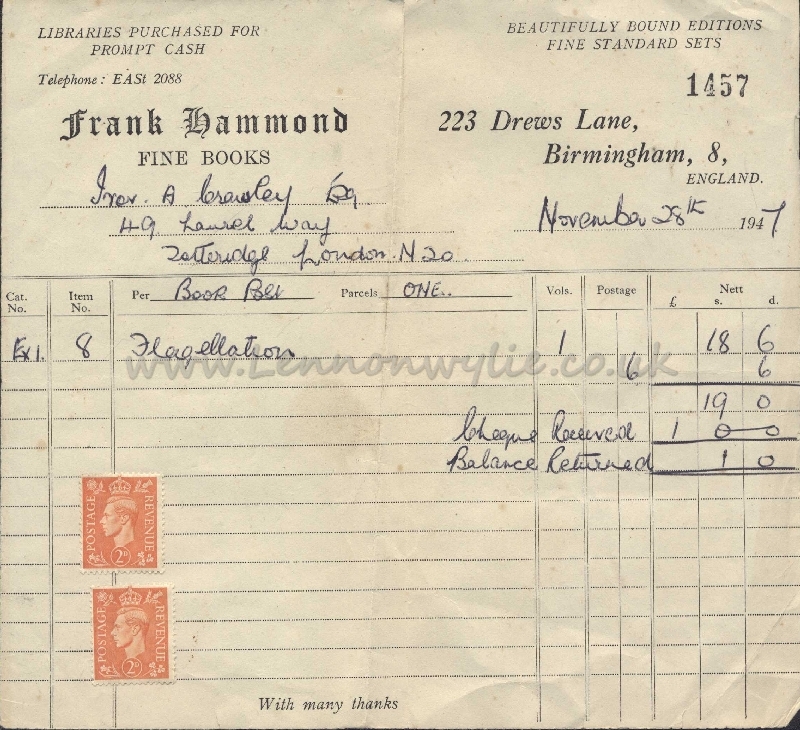 LIBRARIES PURCHASED FOR
PROMPT CASH
Telephone: EASt 2088
Frank Hammond
FINE BOOKS
BEAUTIFULLY BOUND EDITIONS
FINE STANDARD SETS
1457
223 Drews Lane,
Birmingham, 8,
ENGLAND.
Ivor. A Crawley Esq
49 Laurel Way
Totteridge London. N20.
November 28th 1947
Cat. No. Item No. Per Book Post Parcels ONE.. Vols. Postage Nett £ s. d.
Ex1. 8 Flagellation 1 18 6
6 6
www.Lennonwylie.co.uk
19 0
Cheque Received 1 0 0
Balance Returned 1 0
POSTAGE REVENUE 2D
POSTAGE REVENUE 2D
With many thanks